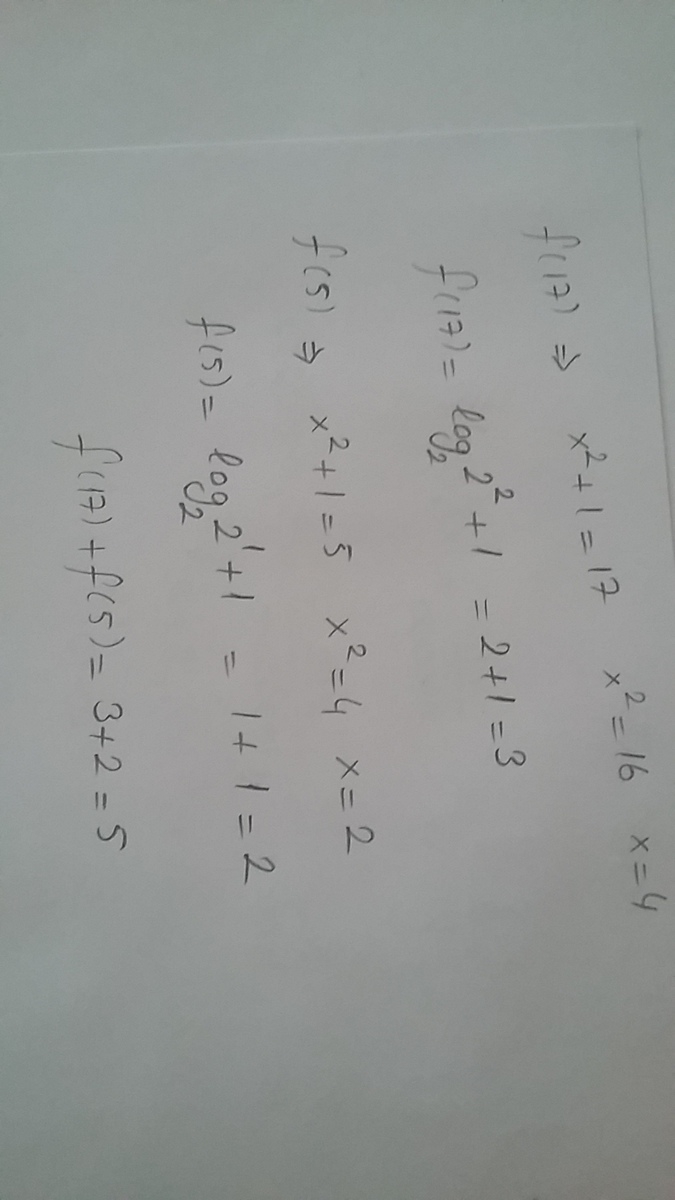 f(17) ⇒ x²+1=17 x²=16 x=4
f(17)= log₂2²+1 =2+1=3
f(5) ⇒ x²+1=5 x²=4 x=2
f(5)= log₂2¹+1 = 1+1=2
f(17)+f(5)= 3+2=5